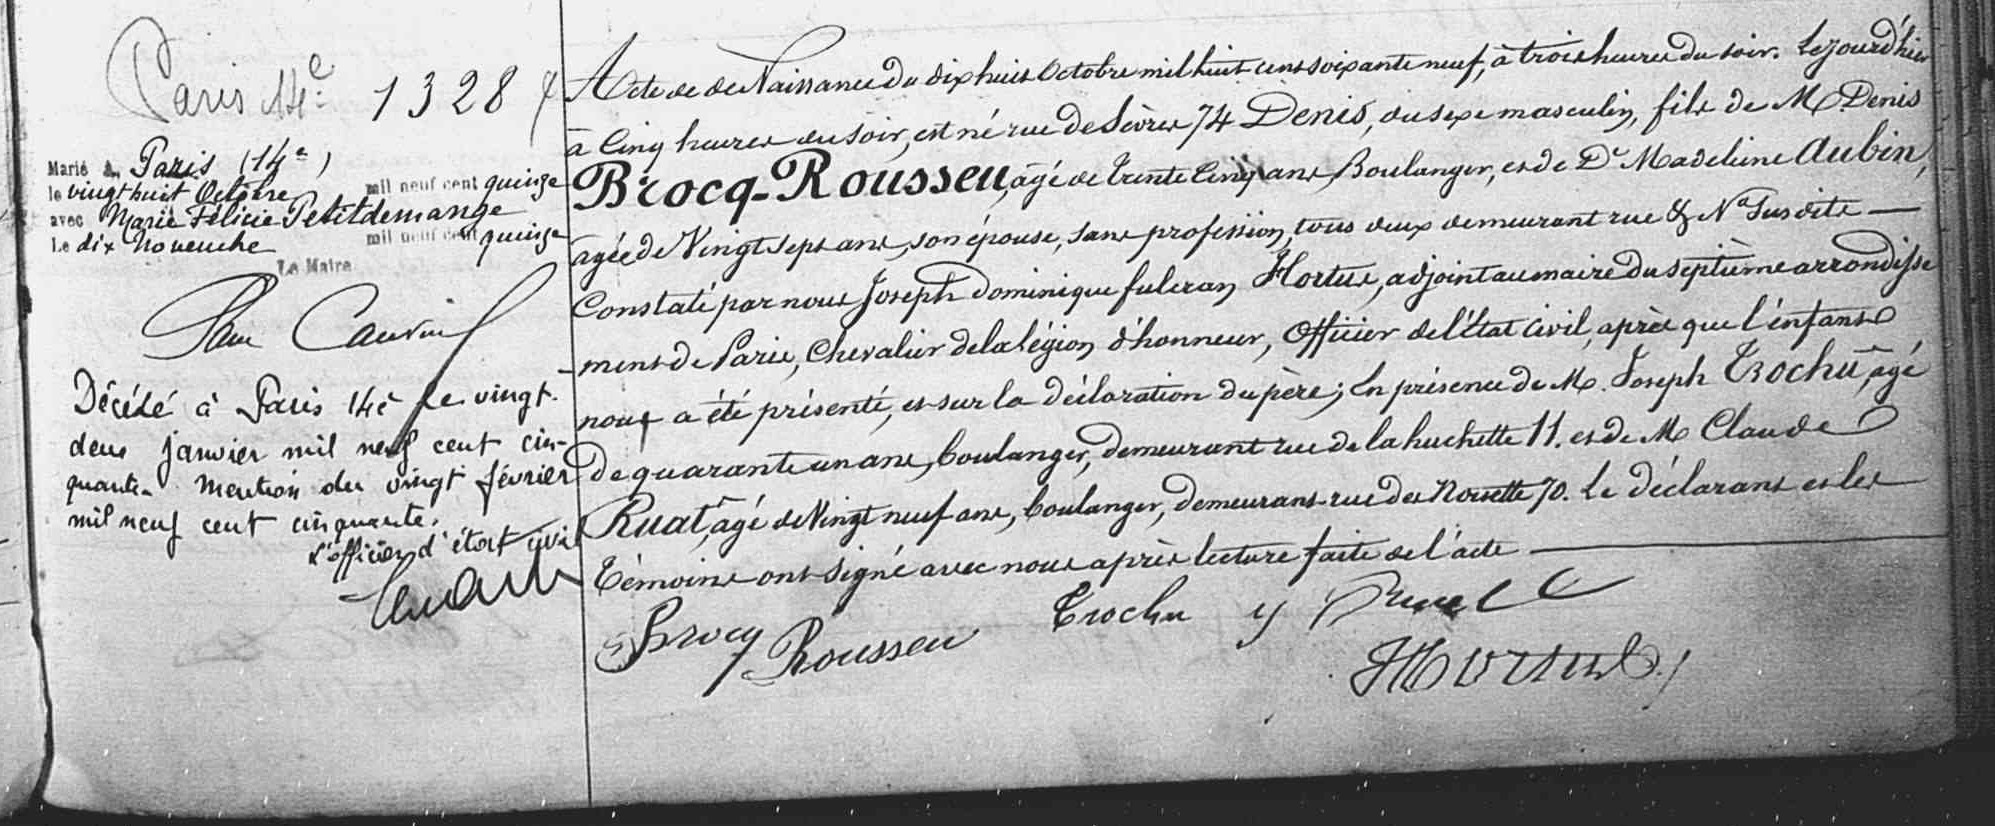 Paris 14e 1328
Marié à Paris (14e)
le vingt huit Octobre mil neuf cent quinze
avec Marie Félicie Petitdemange
Le dix Novembre mil neuf cent quinze
Le Maire
Décédé à Paris 14e le vingt-
deux janvier mil neuf cent cin-
quante. Mention du vingt février
mil neuf cent cinquante.
L'officier d'état civil
Acte de Naissance du dix huit Octobre mil huit cent soixante neuf, à trois heures du soir. Le jour d'hier
à Cinq heures du soir, est né rue de Sèvres 74 Denis, du sexe masculin, fils de M. Denis
Brocq-Rousseu, âgé de trente cinq ans, Boulanger, et de De Madeleine Aubin,
âgée de Vingt sept ans, son épouse, sans profession, tous deux demeurant rue & No Susdits —
Constaté par nous Joseph Dominique fulcran Hortus, adjoint au maire du septième arrondisse
-ment de Paris, Chevalier de la Légion d'honneur, Officier de l'État civil, après que l'enfant
nous a été présenté, et sur la déclaration du père; En présence de M. Joseph Trochu, âgé
de quarante un ans, boulanger, demeurant rue de la huchette 11. et de M. Claude
Ruat, âgé de Vingt neuf ans, boulanger, demeurant rue des 70. Le déclarant et les
témoins ont signé avec nous après lecture faite de l'acte —
Brocq Rousseu Trochu
Hortus